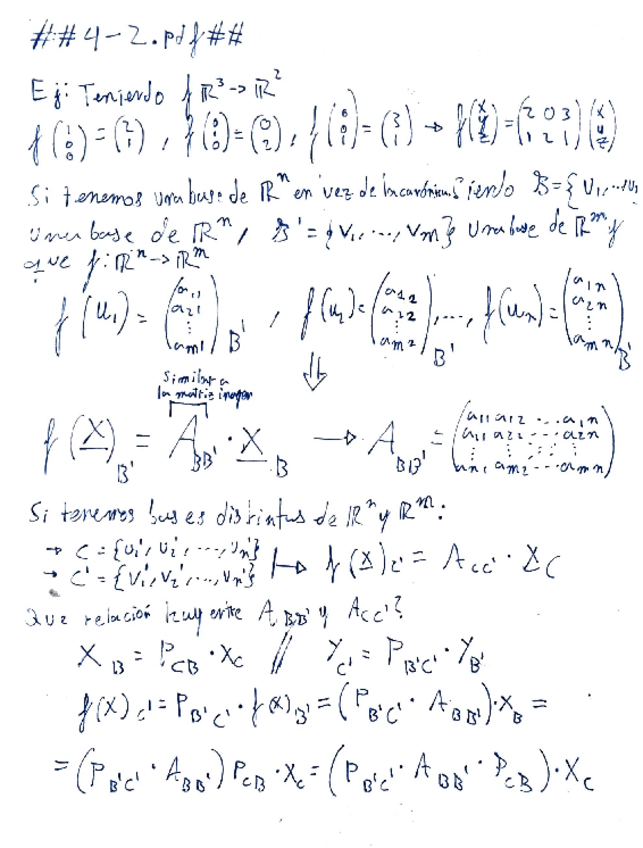 ##4-2.pdf##
Ej: Teniendo f ℝ³→ℝ²
f(1 0 0) = (2 1), f(0 1 0) = (0 2), f(0 0 1) = (3 1) → f(x y z) = (2 0 3 / 1 2 1)(x y z)
Si tenemos una base de ℝⁿ en vez de la canónica. Siendo B={U₁,...,U
una base de ℝⁿ, B'={V₁,...,Vm} una base de ℝᵐ y
que f: ℝⁿ→ℝᵐ
f(U₁) = (a₁₁ a₂₁ ⋮ am₁)B', f(U₂) = (a₁₂ a₂₂ ⋮ am₂)B',..., f(Un) = (a₁n a₂n ⋮ amn)B'
⇓
Similar a
la matriz imagen
f(X)B' = A BB' · X B → A BB' = (a₁₁ a₁₂ ... a₁n / a₁₁ a₂₂ ... a₂n / ⋮ / an₁ am₂ ... amn)
Si tenemos bases distintas de ℝⁿ y ℝᵐ:
→ C = {U₁', U₂', ..., Un'}
→ C' = {V₁', V₂', ..., Vn'} ↦ f(X)C' = A CC' · X C
Que relación hay entre A BB' y A CC'?
X B = P CB · X C // Y C' = P B'C' · Y B'
f(X) C' = P B'C' · f(X) B' = (P B'C' · A BB') · X B =
= (P B'C' · A BB') P CB · X C = (P B'C' · A BB' · P CB) · X C